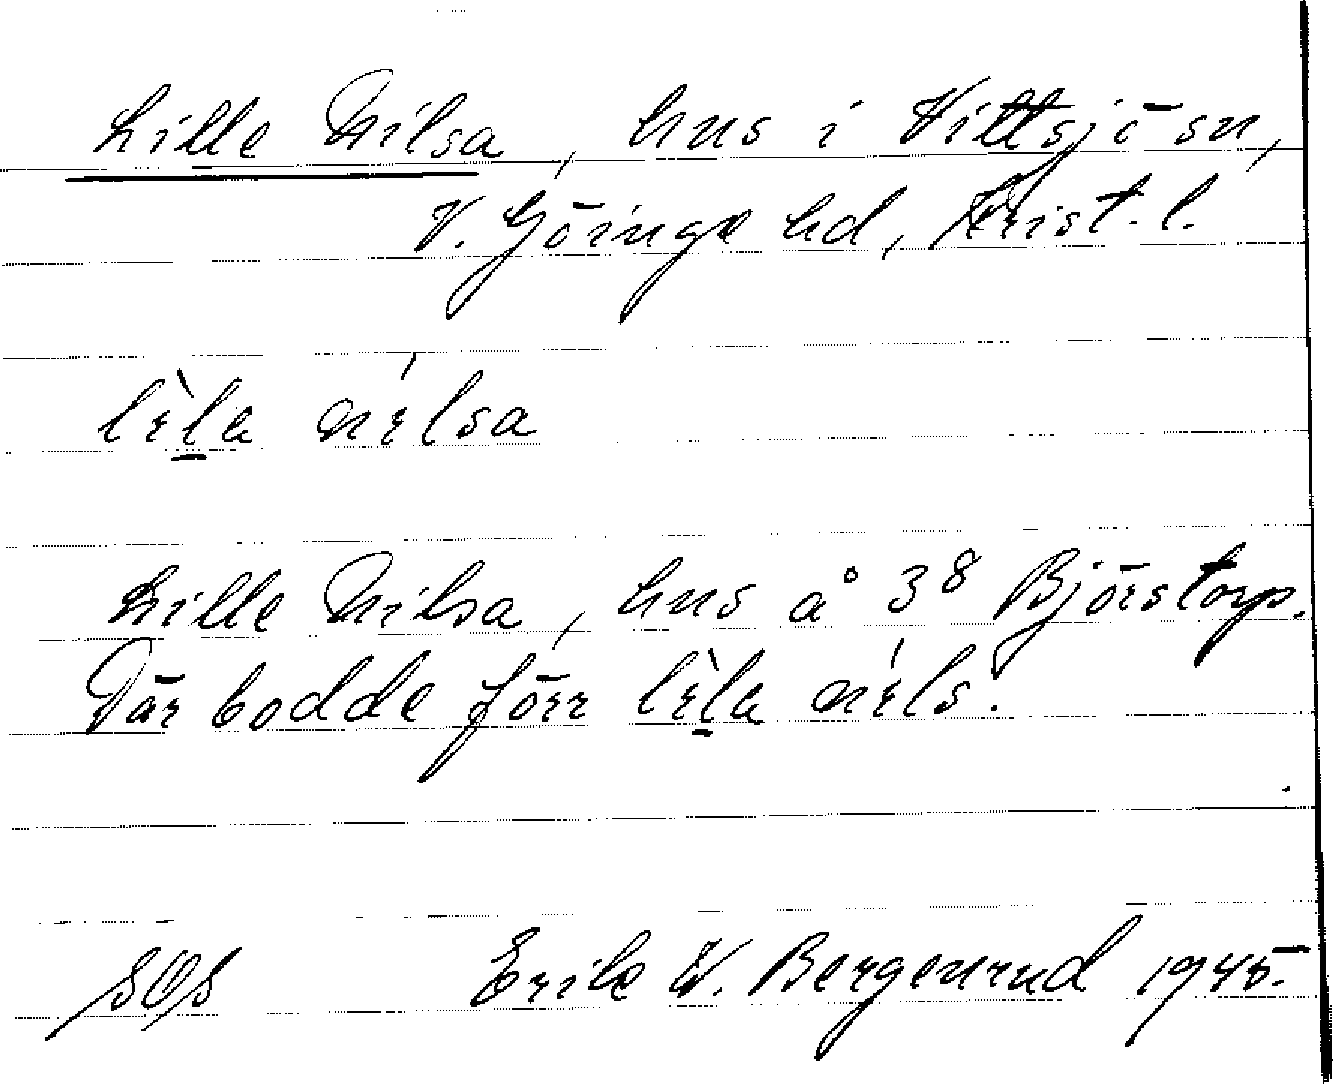 Lille Nilsa, hus i Vittsjö sn,
V. Göinge hd, Krist. l.
lìla nílsa
Lille Nilsa, hus å 3⁸ Björstorp.
Där bodde förr lìla níls.
SOS Erik W. Bergenrud 1945.